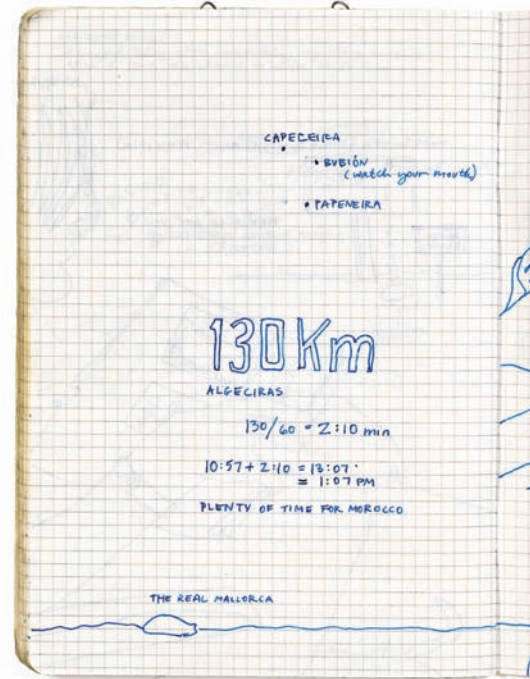 CAPECEIRA
• BUBIÓN
(watch your mouth)
• PAPENEIRA
130Km
ALGECIRAS
130/60 = 2:10 min
10:57 + 2:10 = 13:07
= 1:07 PM
PLENTY OF TIME FOR MOROCCO
THE REAL MALLORCA